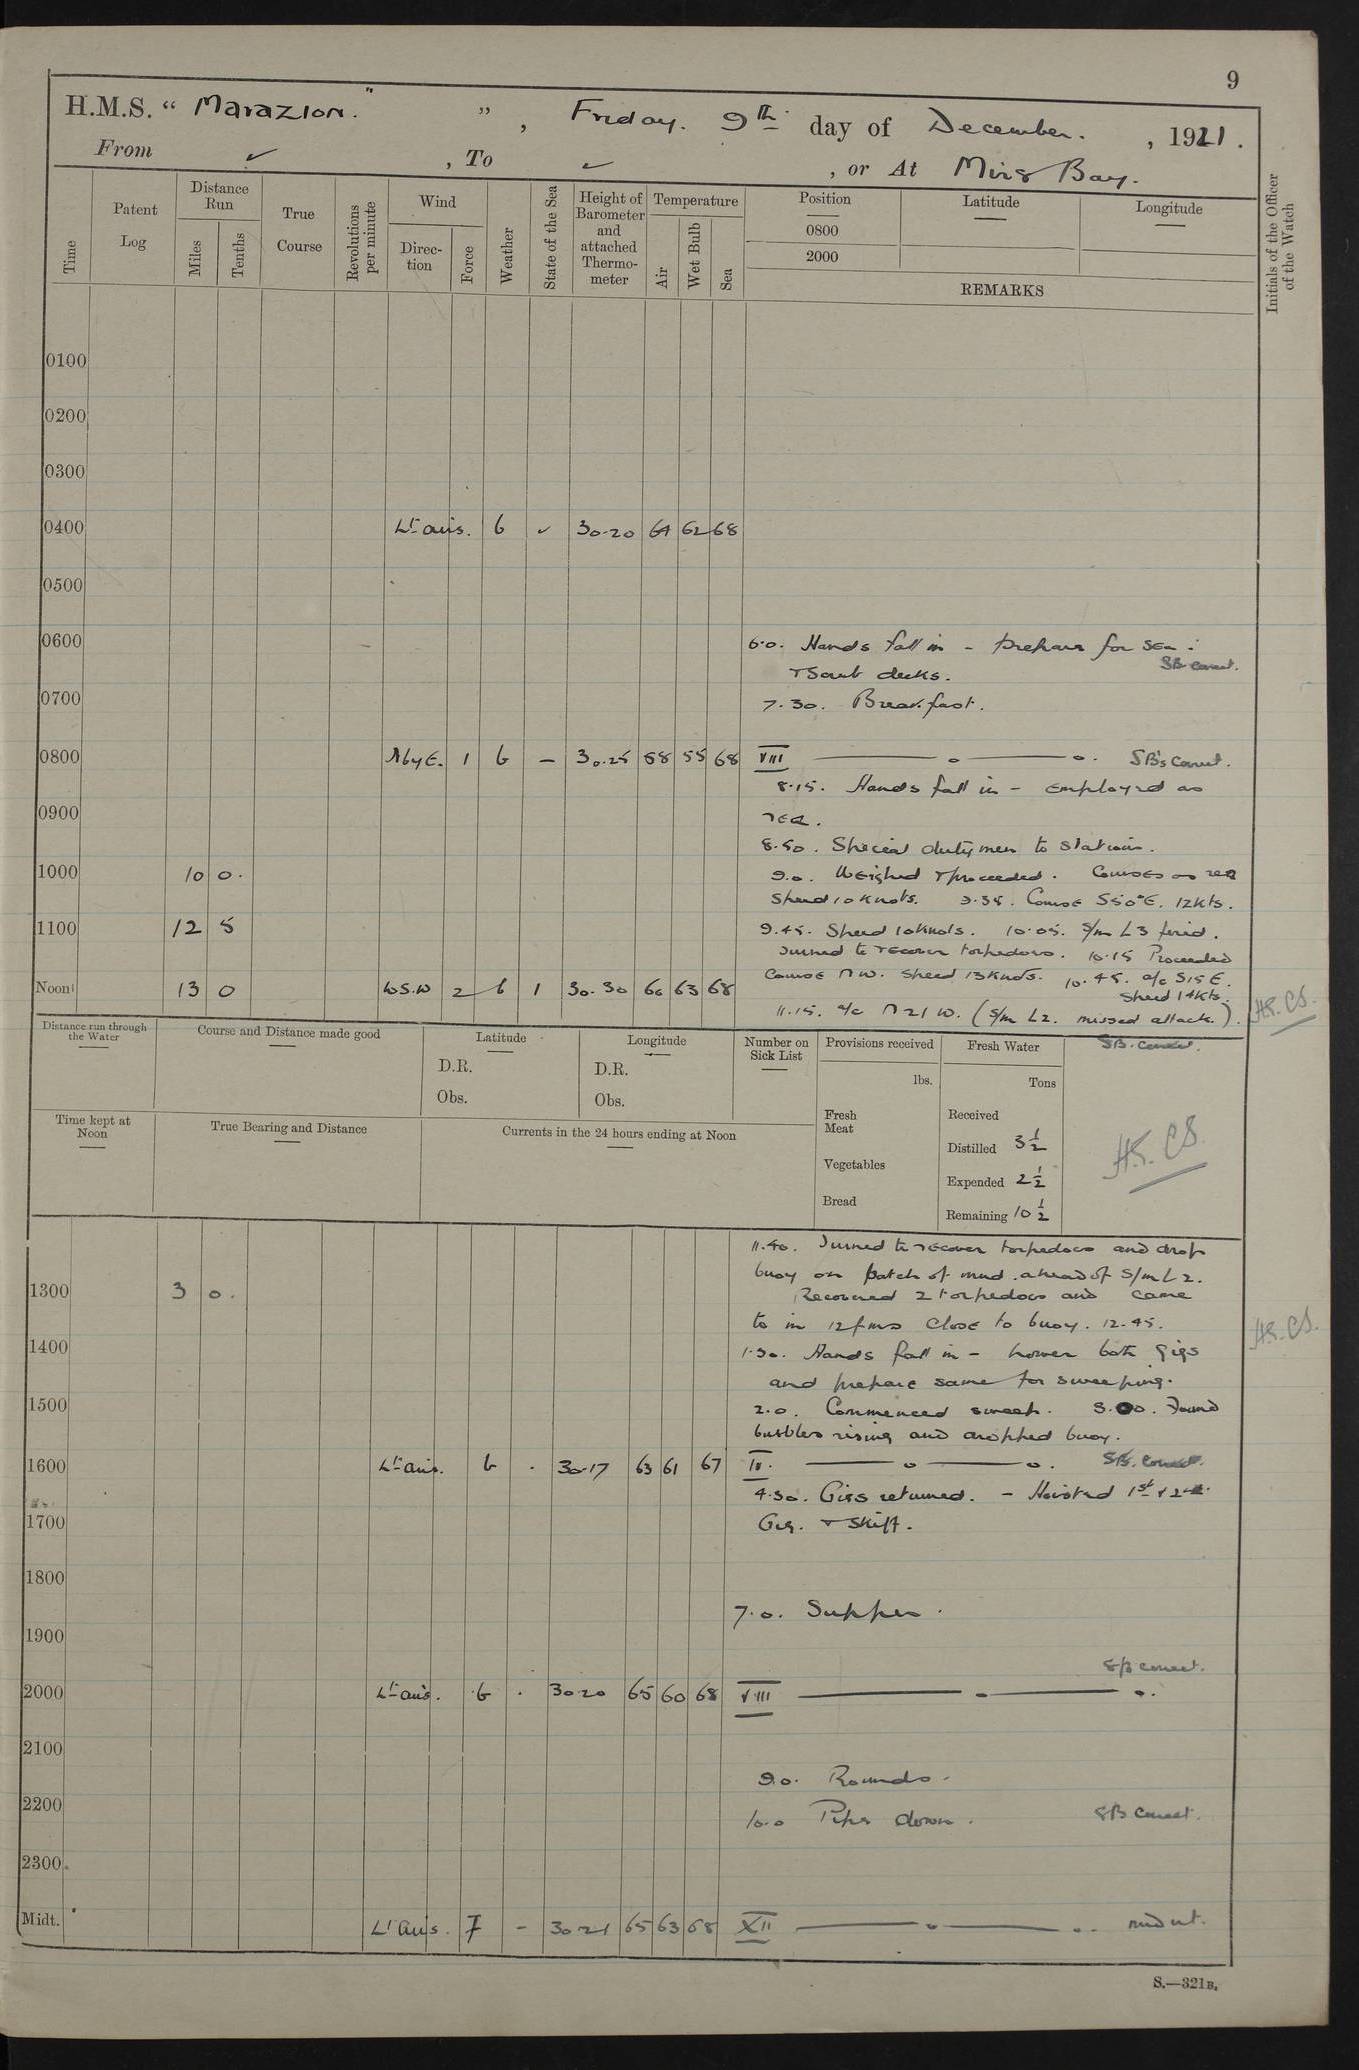 9
H.M.S. " Marazion. " " , Friday. 9th day of December. , 1921.
From ✓ , To ✓ , or At Mirs Bay.
Time
Patent Log
Distance Run
Miles
Tenths
True Course
Revolutions per minute
Wind
Direc-tion
Force
Weather
State of the Sea
Height of Barometer and attached Thermo-meter
Temperature
Air
Wet Bulb
Sea
Position
0800
2000
Latitude
Longitude
REMARKS
Initials of the Officer of the Watch
0100
0200
0300
0400 Lt airs. b ✓ 30.20 64 62 68
0500
0600 6.0. Hands fall in - prepare for sea :
SB correct.
& Scrub decks.
0700 7.30. Breakfast.
0800 N by E. 1 b - 30.25 58 55 68 VIII SB's Correct.
8.15. Hands fall in - employed as
0900 req.
8.50. Special dutymen to stations.
1000 10 0. 9.0. Weighed & proceeded. Courses as req
Speed 10 knots. 9.35. Course S50°E. 12 kts.
1100 12 5 9.45. Speed 10 knots. 10.05. S/m L3 fired.
Turned to recover torpedoes. 10.15 Proceeded
Course NW. Speed 13 knots. 10.45. a/c S15E.
Speed 14 kts.
Noon 13 0 W.S.W 2 b 1 30.30 66 63 68
11.15. a/c N 21 W. (S/m L2. missed attack.).
SB. correct.
Distance run through the Water
Course and Distance made good
Latitude
D.R.
Obs.
Longitude
D.R.
Obs.
Number on Sick List
Provisions received
lbs.
Fresh Meat
Vegetables
Bread
Fresh Water
Tons
Received
Distilled 3 1/2
Expended 2 1/2
Remaining 10 1/2
Time kept at Noon
True Bearing and Distance
Currents in the 24 hours ending at Noon
11.40. Turned to recover torpedoes and drop
buoy on patch of mud ahead of S/m L2.
1300 3 0. Recovered 2 torpedoes and came
to in 12 fms close to buoy. 12.45.
1400 1.30. Hands fall in - lower both gigs
and prepare same for sweeping.
1500 2.0. Commenced sweep. 3.00. Found
bubbles rising and dropped buoy.
1600 Lt airs. b . 30.17 63 61 67 IV. SB. Correct.
4.30. Gigs returned. - Hoisted 1st & 2nd
1700 Gig. & Skiff.
1800
7.0. Supper.
1900
SB correct.
2000 Lt airs. b . 30.20 65 60 68 VIII
2100
9.0. Rounds.
2200 10.0 Pipe down. SB correct.
2300
Midt. Lt airs. F - 30.21 65 63 68 XII
S.—321B.